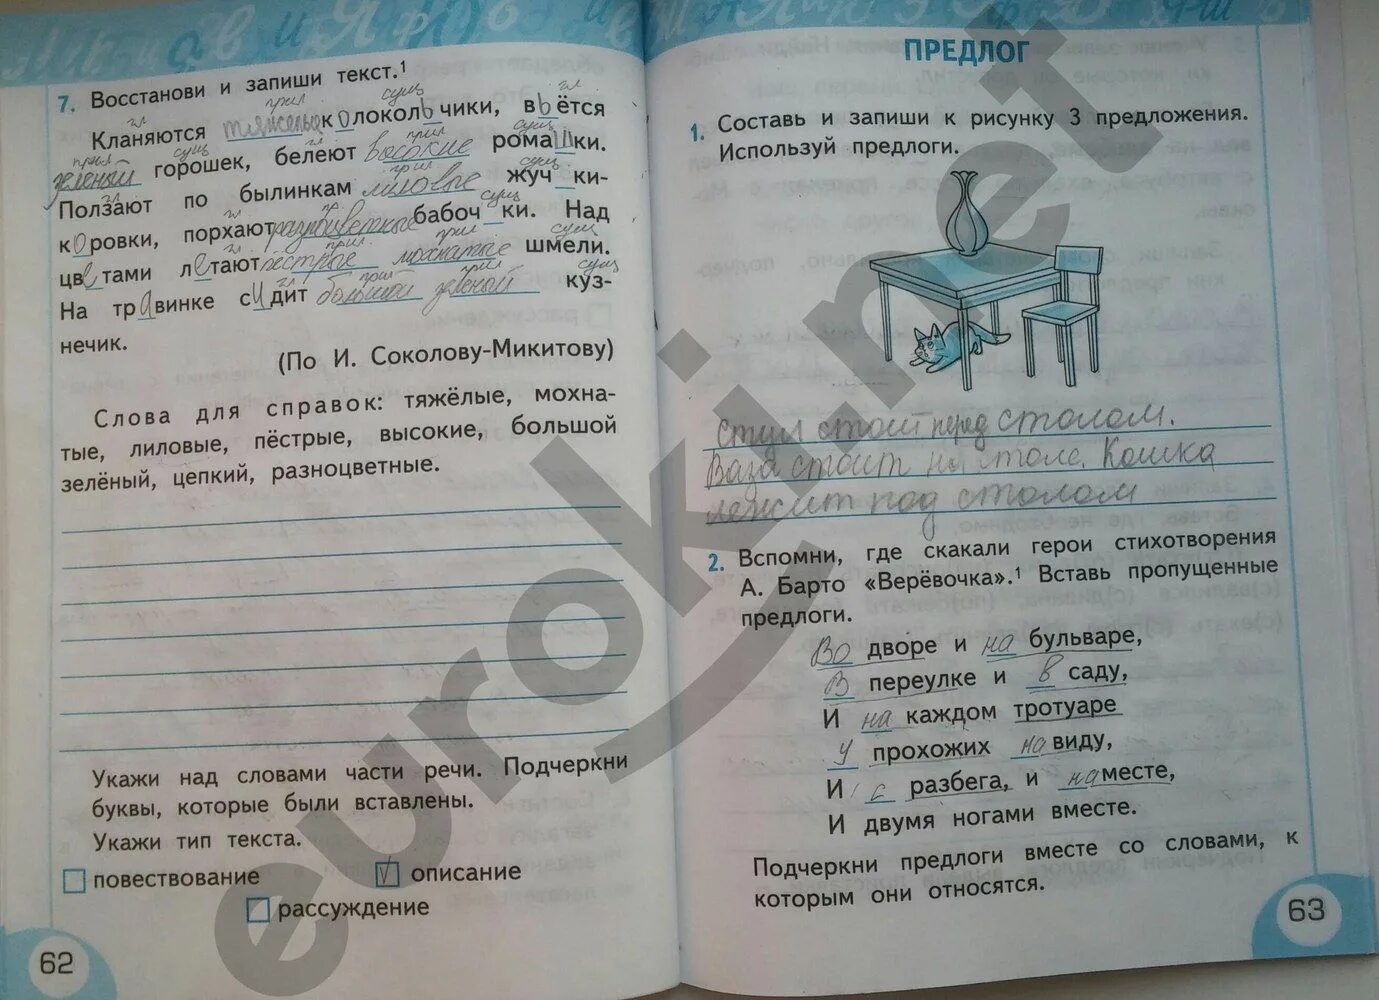 7. Восстанови и запиши текст.¹
Кланяются тяжелые колокольчики, вьётся
зеленый горошек, белеют высокие ромашки.
Ползают по былинкам лиловые жучки-
коровки, порхают разноцветные бабочки. Над
цветами летают пестрые мохнатые шмели.
На травинке сидит большой зеленый куз-
нечик.
(По И. Соколову-Микитову)
Слова для справок: тяжёлые, мохна-
тые, лиловые, пёстрые, высокие, большой
зелёный, цепкий, разноцветные.
Укажи над словами части речи. Подчеркни
буквы, которые были вставлены.
Укажи тип текста.
повествование
описание
рассуждение
62
ПРЕДЛОГ
1. Составь и запиши к рисунку 3 предложения.
Используй предлоги.
Стул стоит перед столом.
Ваза стоит на столе. Кошка
лежит под столом
2. Вспомни, где скакали герои стихотворения
А. Барто «Верёвочка».¹ Вставь пропущенные
предлоги.
Во дворе и на бульваре,
В переулке и в саду,
И на каждом тротуаре
У прохожих на виду,
И с разбега, и на месте,
И двумя ногами вместе.
Подчеркни предлоги вместе со словами, к
которым они относятся.
63
euroki.net